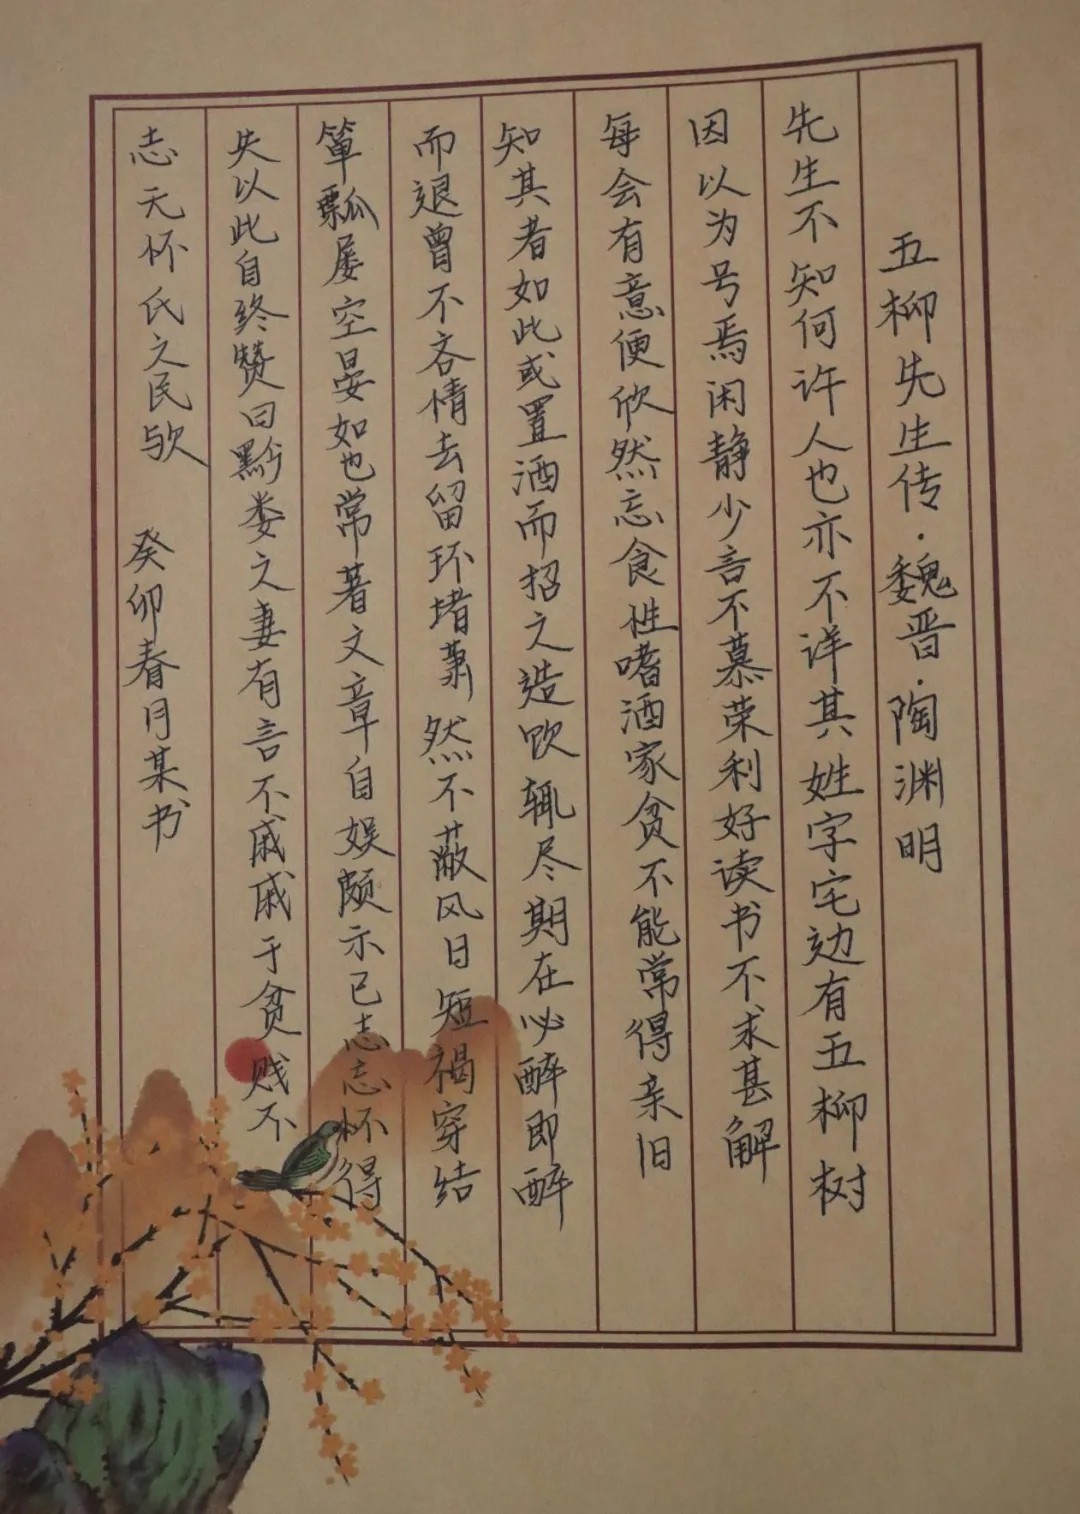 五柳先生传·魏晋·陶渊明
先生不知何许人也亦不详其姓字宅边有五柳树
因以为号焉闲静少言不慕荣利好读书不求甚解
每会有意便欣然忘食性嗜酒家贫不能常得亲旧
知其者如此或置酒而招之造饮辄尽期在必醉即醉
而退曾不吝情去留环堵萧然不蔽风日短褐穿结
箪瓢屡空晏如也常著文章自娱颇示己志志怀得
失以此自终赞曰黔娄之妻有言不戚戚于贫贱不
志无怀氏之民欤 癸卯春月某书